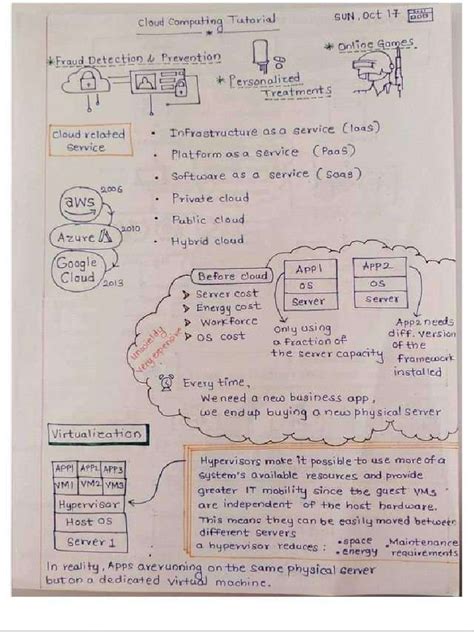 Cloud Computing Tutorial
SUN, Oct 17
* Fraud Detection & Prevention
* Personalized
Treatments
* Online Games
Cloud related
Service
• Infrastructure as a service (IaaS)
• Platform as a service (PaaS)
• Software as a service (SaaS)
• Private cloud
• Public cloud
• Hybrid cloud
aws 2006
Azure 2010
Google
Cloud 2013
Before cloud
Server cost
Energy cost
Workforce
OS cost
unwieldy
very expensive
APP1
OS
Server
APP2
OS
server
only using
a fraction of
the server capacity
App2 needs
diff. version
of the
framework
installed
Every time,
We need a new business app,
we end up buying a new physical server
Virtualization
APP1 APP2 APP3
VM1 VM2 VM3
Hypervisor
Host OS
Server 1
Hypervisors make it possible to use more of a
system's available resources and provide
greater IT mobility since the guest VMs
are independent of the host hardware.
This means they can be easily moved between
different servers
a hypervisor reduces: • space • Maintenance
• energy requirements
In reality, Apps are running on the same physical server
but on a dedicated virtual machine.